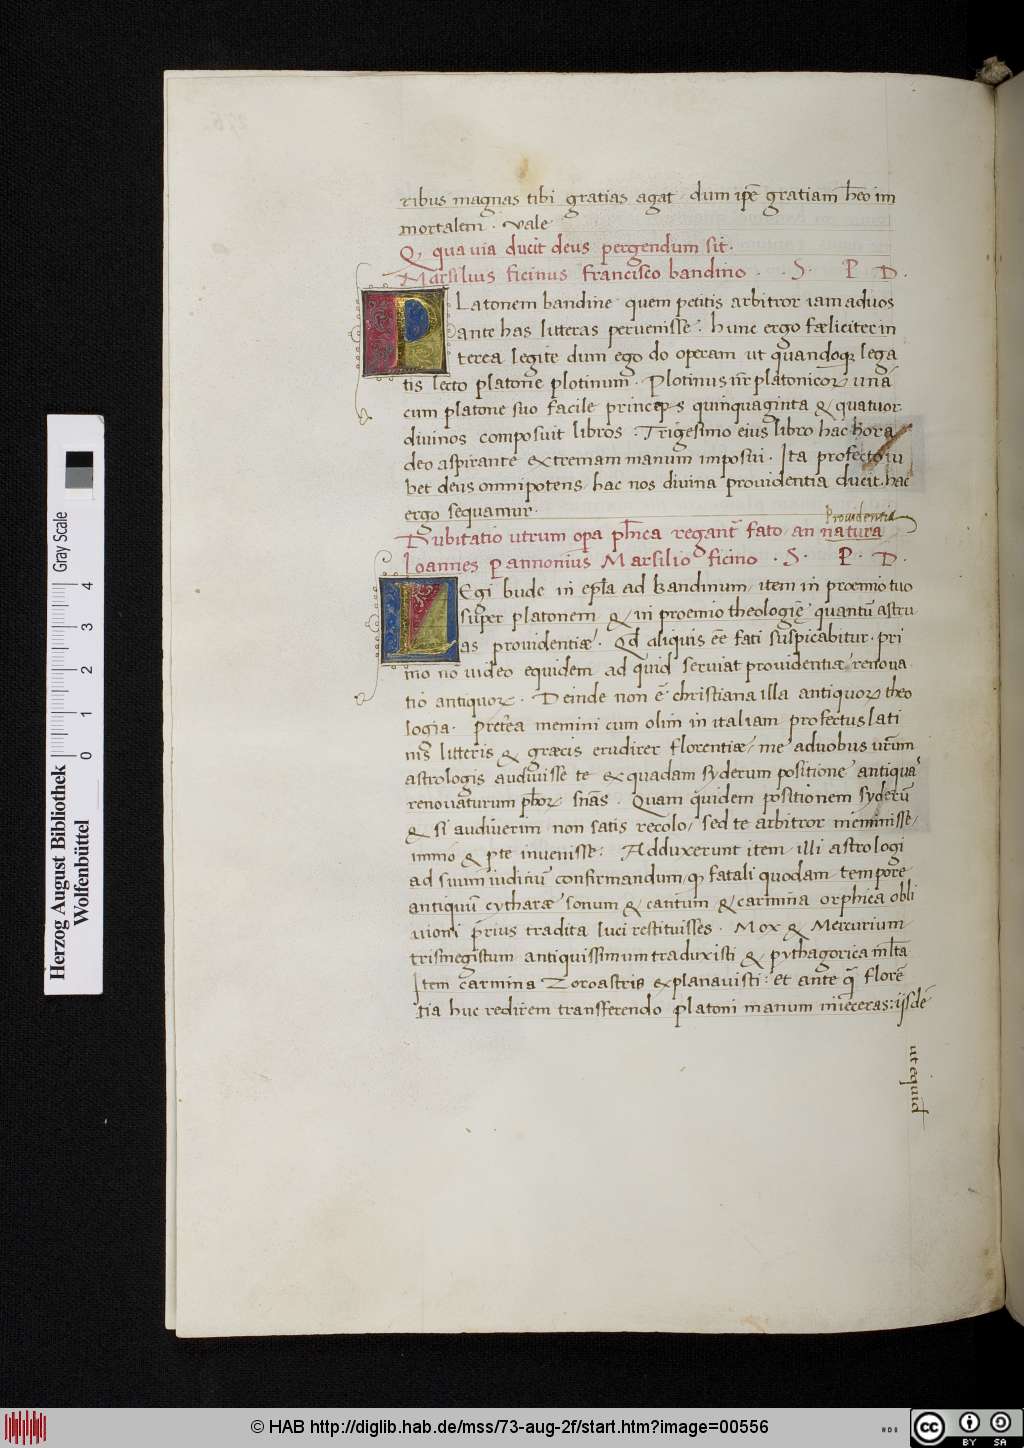 ribus magnas tibi gratias agat, dum ipe gratiam heo im
mortalem . vale
Q, qua via ducit deus pergendum sit.
Marsilius ficinus francisco bandino . . S . P D .
PLatonem bandine quem petitis arbitror iam ad uos
ante has litteras peruenisse . hunc ergo fæliciter in
terea legite dum ego do operam ut quandoq; lega
tis lecto platone plotinum . Plotinus nr̄ platonicoꝝ unā
cum platone suo facile princeps quinquaginta & quatuor
diuinos composuit libros . Trigesimo eius libro hac hora
deo aspirante extremam manum imposui . Ita profecto iu
bet deus omnipotens, hac nos diuina prouidentia ducit, hac
ergo sequamur .
Providentia
Dubitatio utrum opa ph̄ica regant̄ fato, an natura
Ioannes Pannonius Marsilio ficino . S . P . D .
LEgi bude in ep̄la ad bandinum, item in proemio tuo
super platonem & in proemio theologię quantū astru
as prouidentiæ . Qd aliquis eē fati suspicabitur . pri
mo nō uideo equidem ad quid seruiat prouidentiæ renoua
tio antiquoꝝ . Deinde non ē christiana illa antiquoꝝ theo
logia . Pret̄ea memini cum olim in italiam profectus lati
nis litteris & græcis erudirer florentiæ, me a duobus ur̄um
astrologis audiuisse te ex quadam syderum positione antiquā
renouaturum ph̄oꝝ sn̄as . Quam quidem positionem syderū
& si audiuerim, non satis recolo, sed te arbitror meminisse,
immo & p̄te inuenisse : Adduxerunt item, illi astrologi
ad suum iuditiū confirmandum, q, fatali quodam tempore
antiquū cytharæ sonum & cantum & carmina orphica obli
uioni prius tradita luci restituisses . Mox & Mercurium
trismegistum antiquissimum traduxisti & pythagorica ml̄ta
Item carmina Zoroastris explanauisti : et ante q̄ florē
tia huc redirem transferendo platoni manum inieceras : iisdē
ut equid
Herzog August Bibliothek
Wolfenbüttel
Gray Scale
0 1 2 3 4
© HAB http://diglib.hab.de/mss/73-aug-2f/start.htm?image=00556
cc BY SA